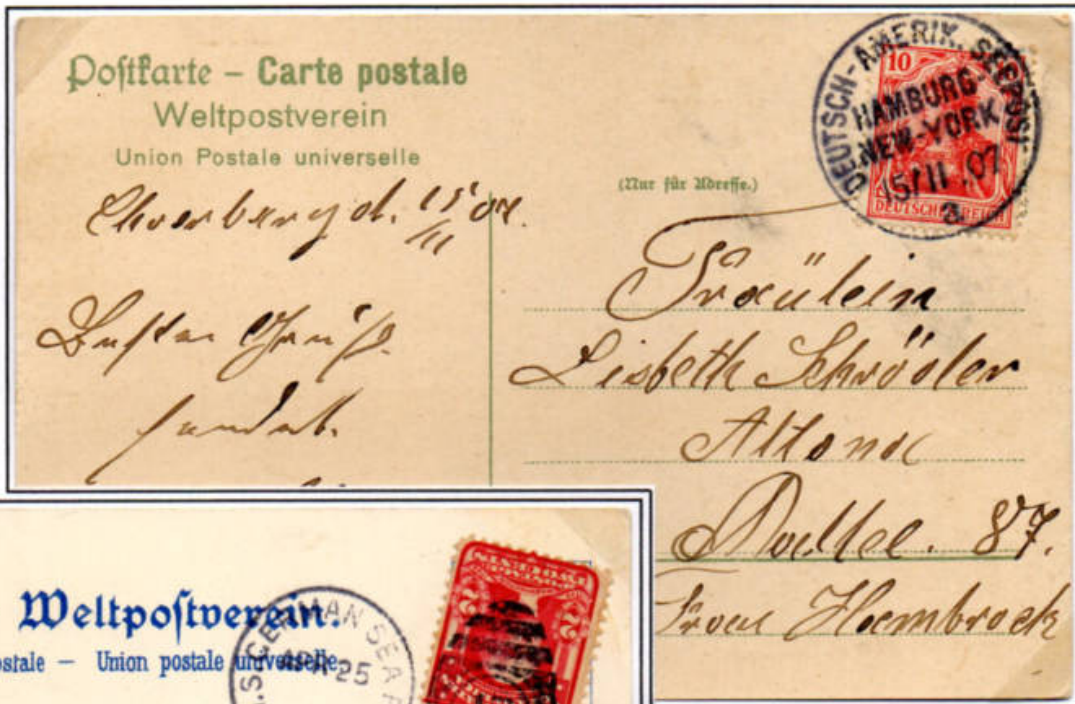 Postkarte – Carte postale
Weltpostverein
Union Postale universelle
(Nur für Adresse.)
DEUTSCH-AMERIK. SEEPOST
HAMBURG-
NEW-YORK
15/11.07
a
10
DEUTSCHES REICH
15/11 07.
Bester Gruß
sendet
Fräulein
Lisbeth Schröder
Altona
87.
Frau Hambrock
Weltpostverein.
ostale – Union postale universelle
.S. GERMAN SEA P
APR 25